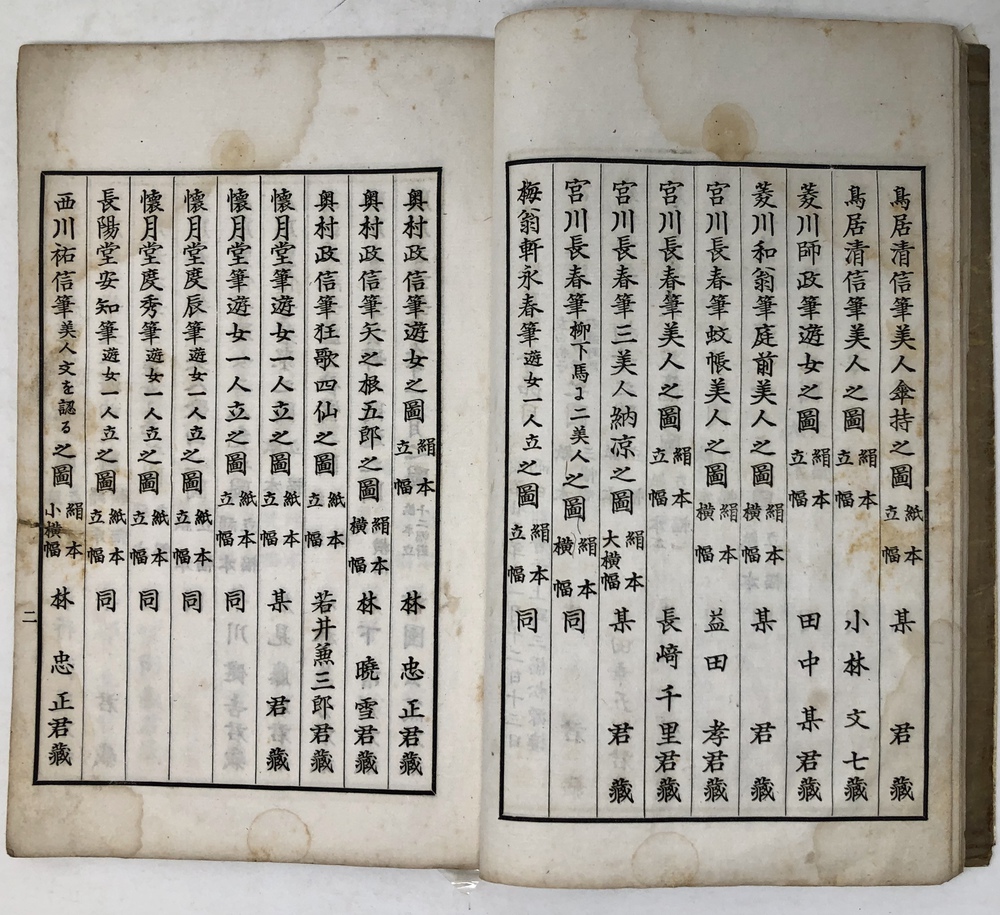 鳥居清信筆美人傘持之圖 紙本立幅 某君藏
鳥居清信筆美人之圖 絹本立幅 小林文七君藏
菱川師政筆遊女之圖 絹本立幅 田中某君藏
菱川和翁筆庭前美人之圖 絹本橫幅 某君藏
宮川長春筆蚊帳美人之圖 絹本橫幅 益田孝君藏
宮川長春筆美人之圖 絹本立幅 長﨑千里君藏
宮川長春筆三美人納凉之圖 絹本大橫幅 某君藏
宮川長春筆柳下馬ニ二美人之圖 絹本橫幅 同
梅翁軒永春筆遊女一人立之圖 絹本立幅 同
奥村政信筆遊女之圖 絹本立幅 林忠正君藏
奥村政信筆矢之根五郎之圖 絹本橫幅 林下曉雪君藏
奥村政信筆狂歌四仙之圖 紙本立幅 若井兼三郎君藏
懷月堂筆遊女一人立之圖 紙本立幅 某君藏
懷月堂筆遊女一人立之圖 紙本立幅 同
懷月堂度辰筆遊女一人立之圖 紙本立幅 同
懷月堂度秀筆遊女一人立之圖 紙本立幅 同
長陽堂安知筆遊女一人立之圖 紙本立幅 同
西川祐信筆美人文を認る之圖 絹本小橫幅 林忠正君藏
二